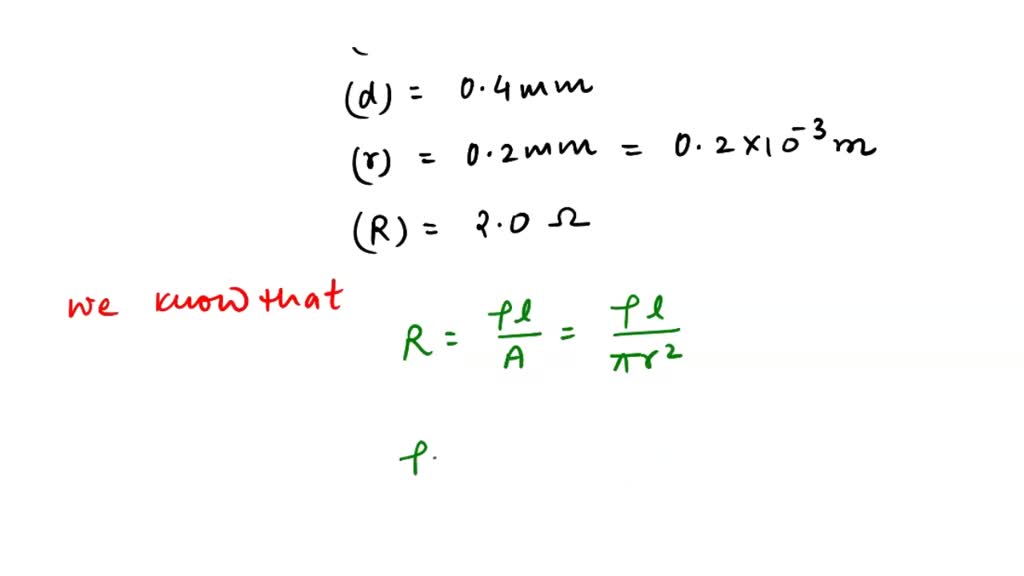 (d) = 0.4 mm
(r) = 0.2 mm = 0.2 × 10⁻³ m
(R) = 2.0 Ω
we know that
R = ρl/A = ρl/πr²
ρ